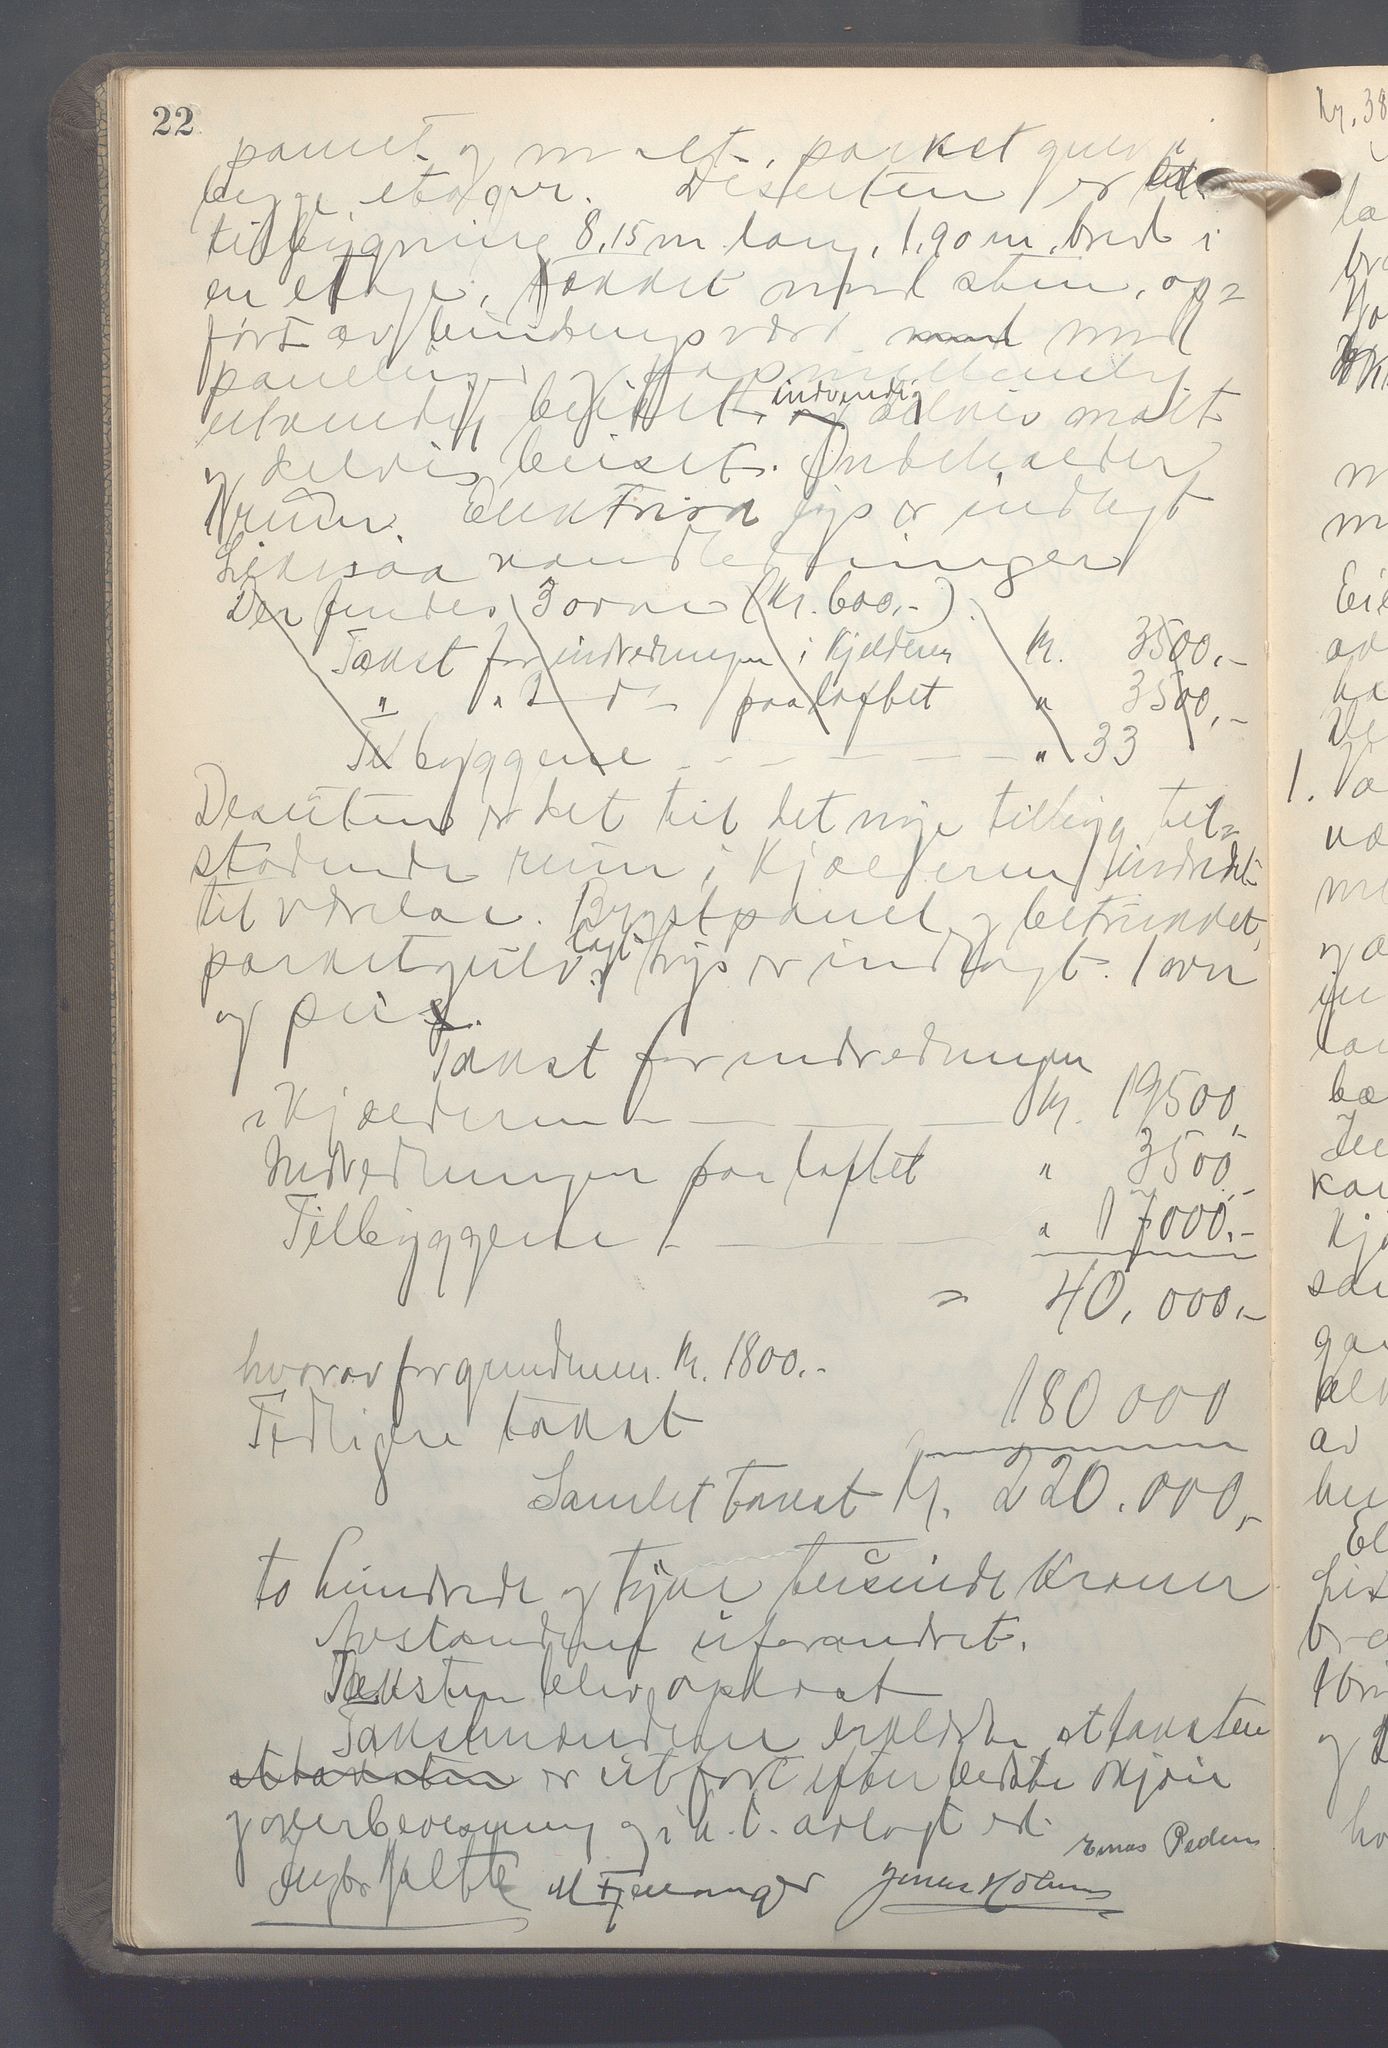 22
panel og malt, parket gulv i
begge etager. Desuten er et
tilbygning 8,15 m lang, 1,90 m bred i
en etage, tækket med sten, op-
ført av bindingsverk med
paneling og
utvendig beiset indvendig delvis malt
og delvis beiset. Indeholder
1 rum. Elektrisk lys er indlagt
Likesaa vandledninger
Der findes 3 ovne (Kr. 600,-)
Takst for indredningen i Kjelderen Kr. 3500,-
" " do paa loftet " 3500,-
Tilbyggene " 33
Desuten er det til det nye tilbygg til-
stødende rum i Kjælderen indredet
til værelse. Brystpanel og betrukket,
parketgulv lagt lys er indlagt. 1 ovn
og peis.
Takst for indredningen
i Kjælderen Kr. 19500,-
Indredningen paa loftet " 3500,-
Tilbyggene " 17000,-
= 40,000,-
hvorav for grunden Kr. 1800,-
Tidligere takst 180 000
Samlet takst Kr. 220.000,-
to hundrede og tyve tusinde Kroner
Avstandene uforandret.
Taksten blev oplæst
Takstmændene erklærte at taksten
at taksten er utført efter bedste skjøn
og overbevisning og i h. t. avlagt ed.
Einar Peders
M Tjensvoger Jonas Holmes
Kr. 38
1.